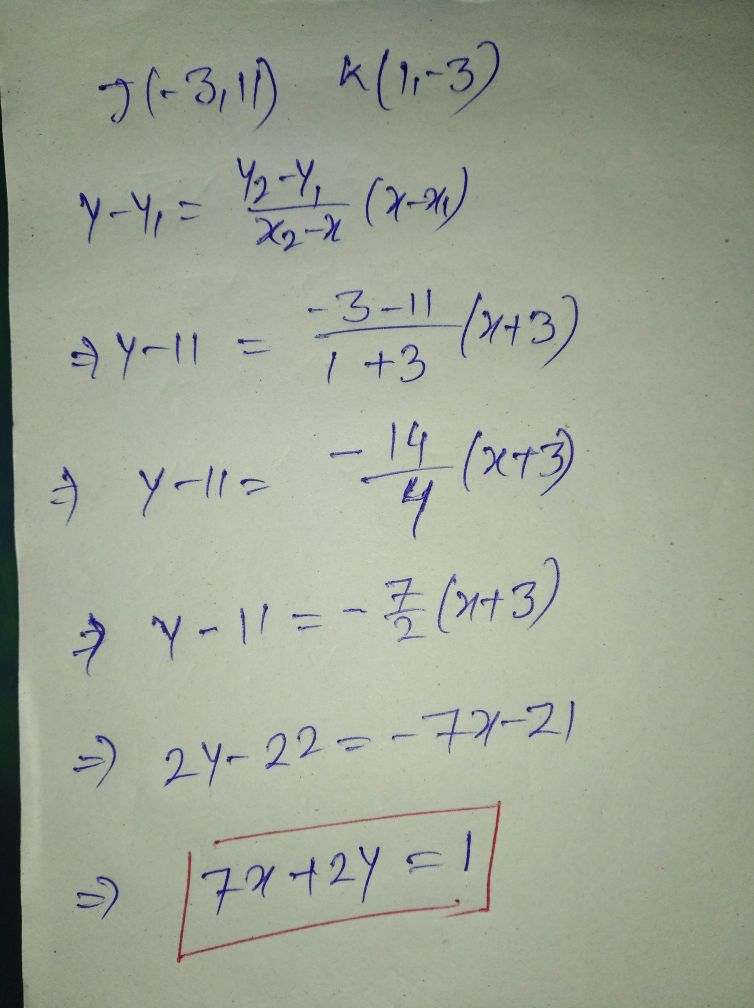 J(-3,11) K(1,-3)
y-y₁ = \frac{y₂-y₁}{x₂-x} (x-x₁)
⇒ y-11 = \frac{-3-11}{1+3} (x+3)
⇒ y-11 = -\frac{14}{4} (x+3)
⇒ y-11 = -\frac{7}{2} (x+3)
⇒ 2y-22 = -7x-21
⇒ 7x+2y = 1